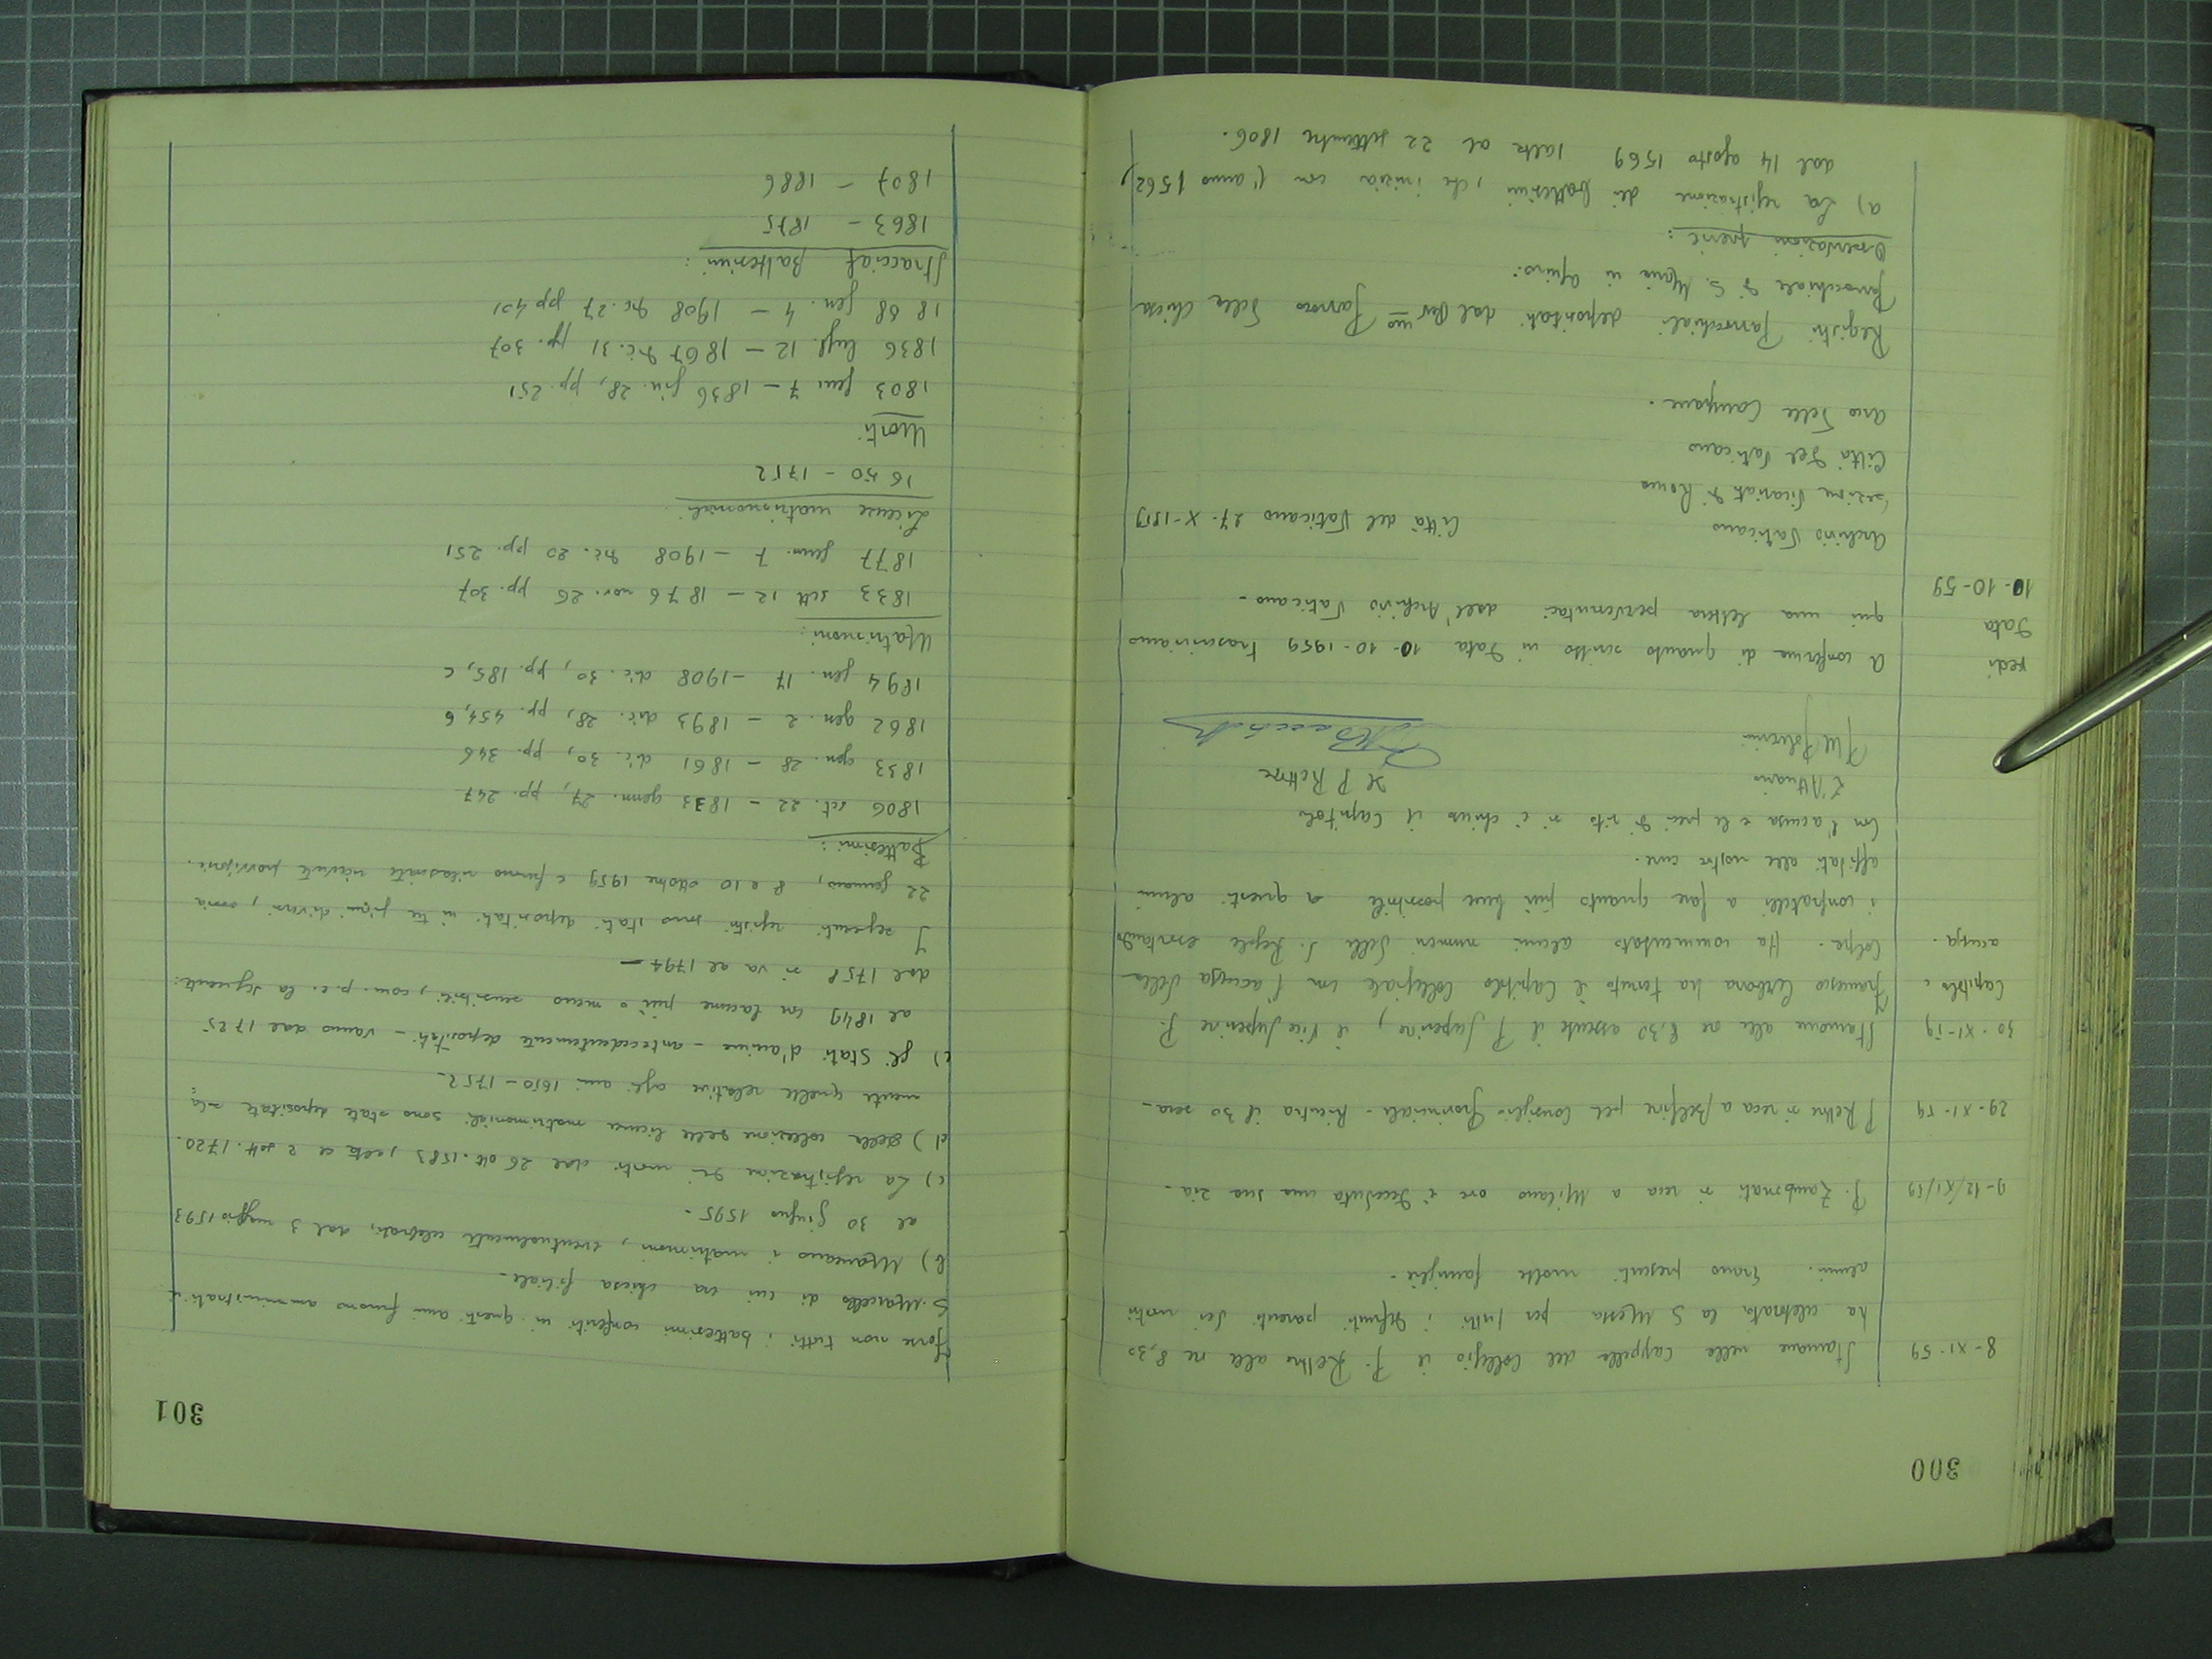 300
8-XI-59 Stamane nella Cappella del Collegio il P. Rettore alle ore 8,30
ha celebrata la S. Messa per tutti i defunti parenti dei nostri
alunni. Erano presenti molte famiglie.
9-12/XI/59 P. Zambonati si reca a Milano ove è deceduta una sua zia.
29-XI-59 P. Rettore si reca a Belfiore pel Consiglio Provinciale. Rientra il 30 sera.
30-XI-59 Stamane alle ore 8,30 assente il P. Superiore, il Vice Superiore P.
Capitolo e Francesco Cerbara ha tenuto il Capitolo Collegiale con l'accusa delle
accusa. Colpe. Ha commentato alcuni numeri delle S. Regole esortando
i confratelli a fare quanto più bene possibile a questi alunni
affidati alle nostre cure.
Con l'accusa e le preci di rito si è chiuso il Capitolo
L'Attuario Il P Rettore
vedi A conferma di quanto scritto in data 10-10-1959 trascriviamo
data qui una lettera pervenutaci dall'Archivio Vaticano.
10-10-59
Archivio Vaticano Città del Vaticano 27-X-1959
Sezione Vicariato di Roma
Città del Vaticano
Arco delle Campane.
Registri Parrocchiali depositati dal Rev=mo Parroco della Chiesa
Parrocchiale di S. Maria in Aquiro.
Osservazioni previe:
a) La registrazione dei battesimi, che inizia con l'anno 1562,
dal 14 agosto 1569 salta al 22 settembre 1806.
301
forse non tutti i battesimi conferiti in questi anni furono amministrati in
S. Marcello di cui era chiesa filiale.
b) Mancano i matrimoni, eventualmente celebrati, dal 3 maggio 1593
al 30 giugno 1595.
c) La registrazione dei morti dal 26 ott. 1583, salta al 2 sett. 1720.
d) della collezione delle licenze matrimoniali sono state depositate sola=
mente quelle relative agli anni 1650-1752.
e) gli Stati d'anime - antecedentemente depositati - vanno dal 1725
al 1849 con lacune più o meno sensibili, com. p.e. la seguente:
dal 1758 si va al 1794 -
I seguenti registri sono stati depositati in tre giorni diversi, ossia
22 gennaio, 8 e 10 ottobre 1959 e furono rilasciate ricevute provvisorie.
Battesimi:
1806 set. 22 - 1833 genn. 27, pp. 247
1833 gen. 28 - 1861 dic. 30, pp. 346
1862 gen. 2 - 1893 dic. 28, pp. 454,6
1894 gen. 17 - 1908 dic. 30, pp. 185, c
Matrimoni:
1833 sett 12 - 1876 nov. 26 pp. 307
1877 genn. 7 - 1908 dic. 20 pp. 251
Licenze matrimoniali
1650 - 1752
Morti
1803 genn 7 - 1836 giu. 28, pp. 251
1836 lugl. 12 - 1867 dic. 31 pp. 307
1868 gen. 4 - 1908 dic. 27 pp 401
Stracciafogli Battesimi:
1863 - 1875
1807 - 1886